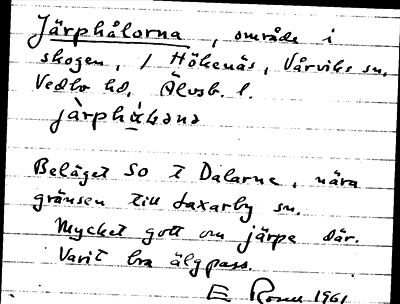 Järphålorna, område i
skogen, / Hökenäs, Vårviks sn,
Vedbo hd, Älvsb. l.
Beläget SO t Dalarne, nära
gränsen till Laxarby sn.
Mycket gott om järpe där.
Varit bra älgpass.
E 1961